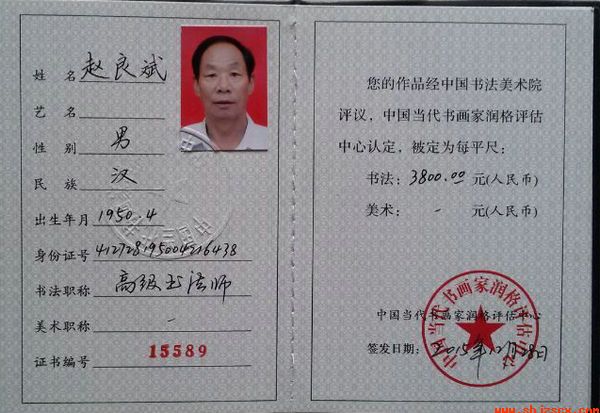 姓 名 赵良斌
艺 名
性 别 男
民 族 汉
出生年月 1950.4
身份证号 412728195004216438
书法职称 高级书法师
美术职称 -
证书编号 15589
您的作品经中国书法美术院
评议，中国当代书画家润格评估
中心认定，被定为每平尺：
书法：3800.00 元(人民币)
美术： - 元(人民币)
中国当代书画家润格评估中心
签发日期：2015年12月28日
中国当代书画家润格评估中心